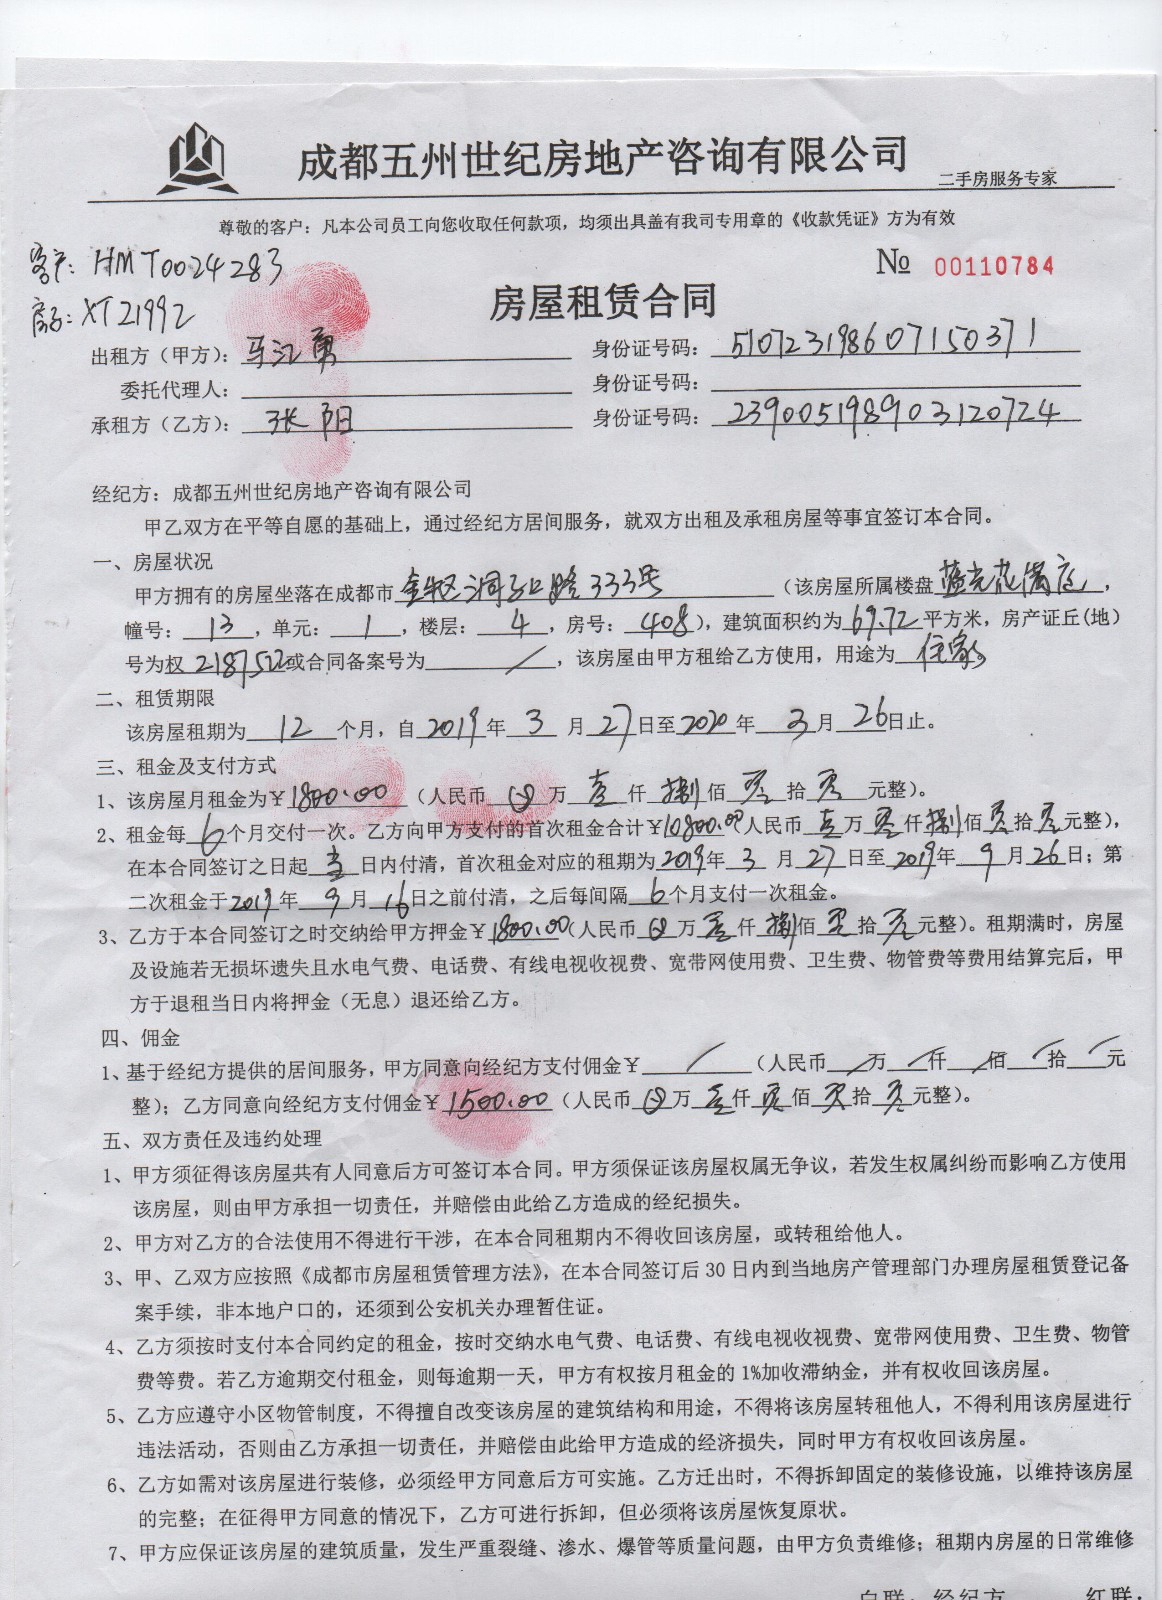 成都五州世纪房地产咨询有限公司
二手房服务专家
尊敬的客户：凡本公司员工向您收取任何款项，均须出具盖有我司专用章的《收款凭证》方为有效
客户：HMT0024283
№ 00110784
房子：XT21992
房屋租赁合同
出租方（甲方）：马江勇 身份证号码：510723198607150371
委托代理人： 身份证号码：
承租方（乙方）：张阳 身份证号码：239005198903120724
经纪方：成都五州世纪房地产咨询有限公司
甲乙双方在平等自愿的基础上，通过经纪方居间服务，就双方出租及承租房屋等事宜签订本合同。
一、房屋状况
甲方拥有的房屋坐落在成都市金牛区洞子口路333号（该房屋所属楼盘蓝光花满庭，
幢号：13，单元：1，楼层：4，房号：408），建筑面积约为69.72平方米，房产证丘(地)
号为权2187522或合同备案号为/，该房屋由甲方租给乙方使用，用途为住家。
二、租赁期限
该房屋租期为12个月，自2019年3月27日至2020年3月26日止。
三、租金及支付方式
1、该房屋月租金为￥1800.00（人民币⊗万壹仟捌佰零拾零元整）。
2、租金每6个月交付一次。乙方向甲方支付的首次租金合计￥10800.00人民币壹万零仟捌佰零拾零元整），
在本合同签订之日起当日内付清，首次租金对应的租期为2019年3月27日至2019年9月26日；第
二次租金于2019年9月16日之前付清，之后每间隔6个月支付一次租金。
3、乙方于本合同签订之时交纳给甲方押金￥1800.00（人民币⊗万壹仟捌佰零拾零元整）。租期满时，房屋
及设施若无损坏遗失且水电气费、电话费、有线电视收视费、宽带网使用费、卫生费、物管费等费用结算完后，甲
方于退租当日内将押金（无息）退还给乙方。
四、佣金
1、基于经纪方提供的居间服务，甲方同意向经纪方支付佣金￥/（人民币/万/仟/佰/拾/元
整）；乙方同意向经纪方支付佣金￥1500.00（人民币⊗万壹仟佰零拾零元整）。
五、双方责任及违约处理
1、甲方须征得该房屋共有人同意后方可签订本合同。甲方须保证该房屋权属无争议，若发生权属纠纷而影响乙方使用
该房屋，则由甲方承担一切责任，并赔偿由此给乙方造成的经纪损失。
2、甲方对乙方的合法使用不得进行干涉，在本合同租期内不得收回该房屋，或转租给他人。
3、甲、乙双方应按照《成都市房屋租赁管理方法》，在本合同签订后30日内到当地房产管理部门办理房屋租赁登记备
案手续，非本地户口的，还须到公安机关办理暂住证。
4、乙方须按时支付本合同约定的租金，按时交纳水电气费、电话费、有线电视收视费、宽带网使用费、卫生费、物管
费等费。若乙方逾期交付租金，则每逾期一天，甲方有权按月租金的1%加收滞纳金，并有权收回该房屋。
5、乙方应遵守小区物管制度，不得擅自改变该房屋的建筑结构和用途，不得将该房屋转租他人，不得利用该房屋进行
违法活动，否则由乙方承担一切责任，并赔偿由此给甲方造成的经济损失，同时甲方有权收回该房屋。
6、乙方如需对该房屋进行装修，必须经甲方同意后方可实施。乙方迁出时，不得拆卸固定的装修设施，以维持该房屋
的完整；在征得甲方同意的情况下，乙方可进行拆卸，但必须将该房屋恢复原状。
7、甲方应保证该房屋的建筑质量，发生严重裂缝、渗水、爆管等质量问题，由甲方负责维修；租期内房屋的日常维修
白联：经纪方 红联：